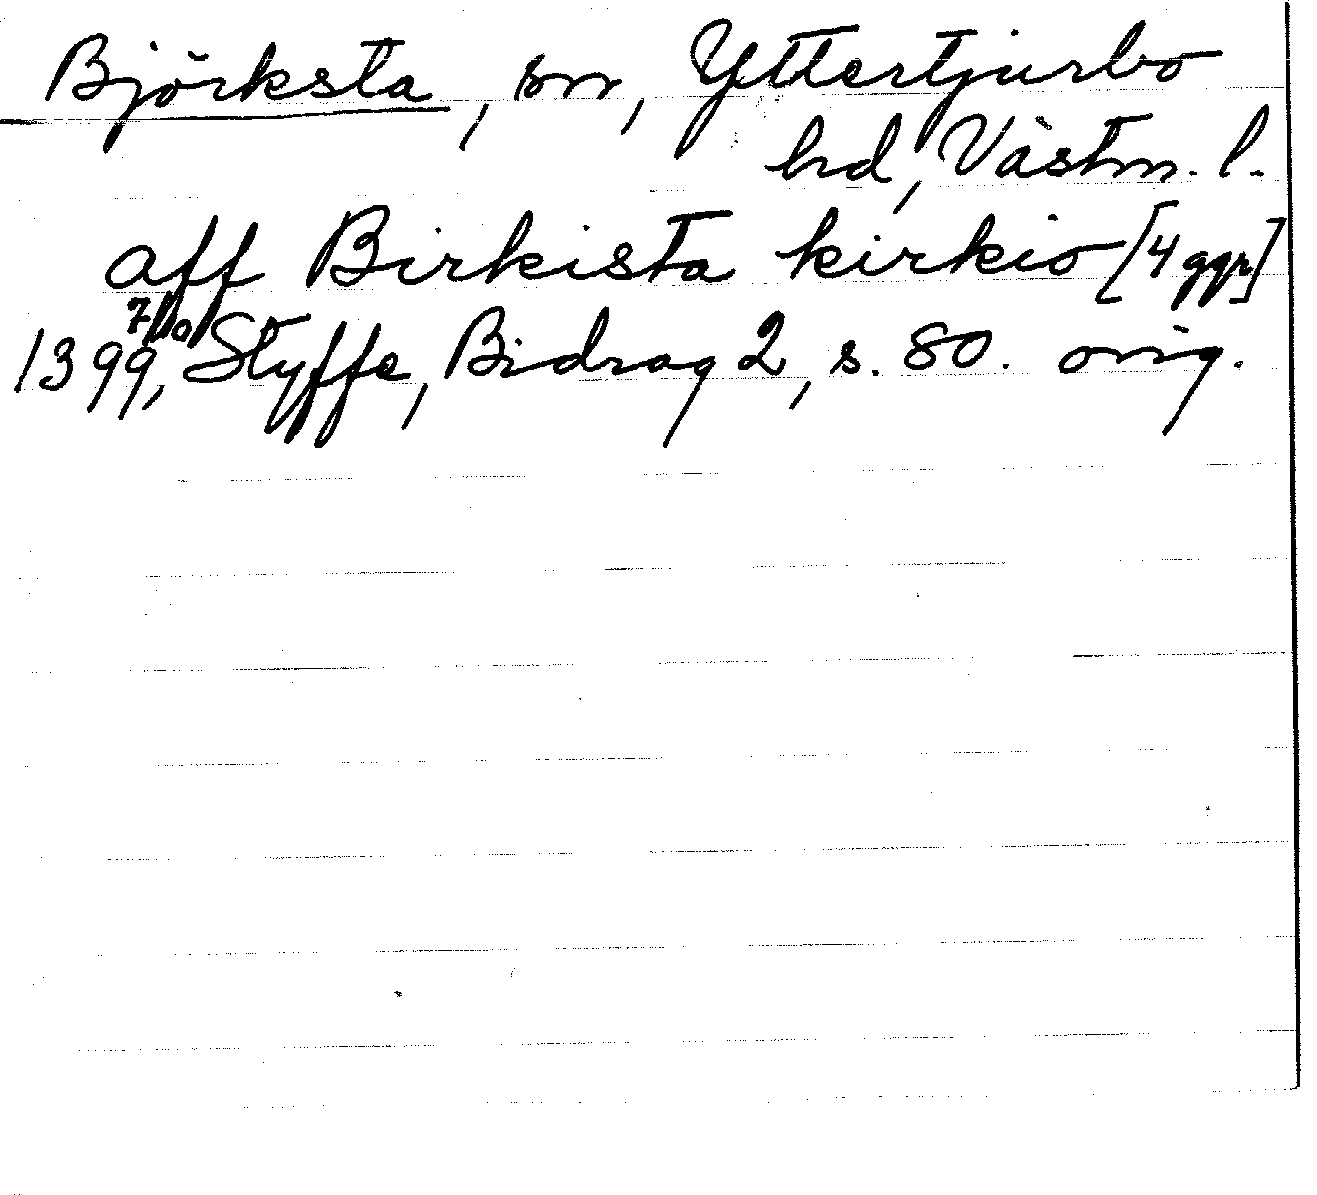 Björksta, sn, Yttertjurbo
hd, Västm. l.
aff Birkista kirkio [4 ggr]
1399 7/10, Styffe, Bidrag 2, s. 80. orig.